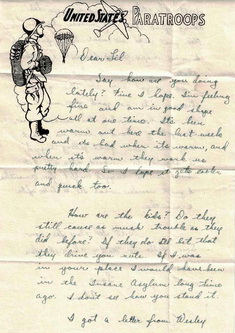 UNITED STATES PARATROOPS
Dear Sil
Say how are you doing
lately? Fine I hope. I'm feeling
fine and am in good shape
all at one time. Its been
warm out here the last week
and its bad when its warm, and
when its warm they work us
pretty hard. So I hope it gets colder
and quick too.
How are the kids? Do they
still cause as much trouble as they
did before? If they do I'll bet that
they drive you nuts. If I was
in your place I would have been
in the Insane Asylum long time
ago. I don't see how you stand it.
I got a letter from Wesley